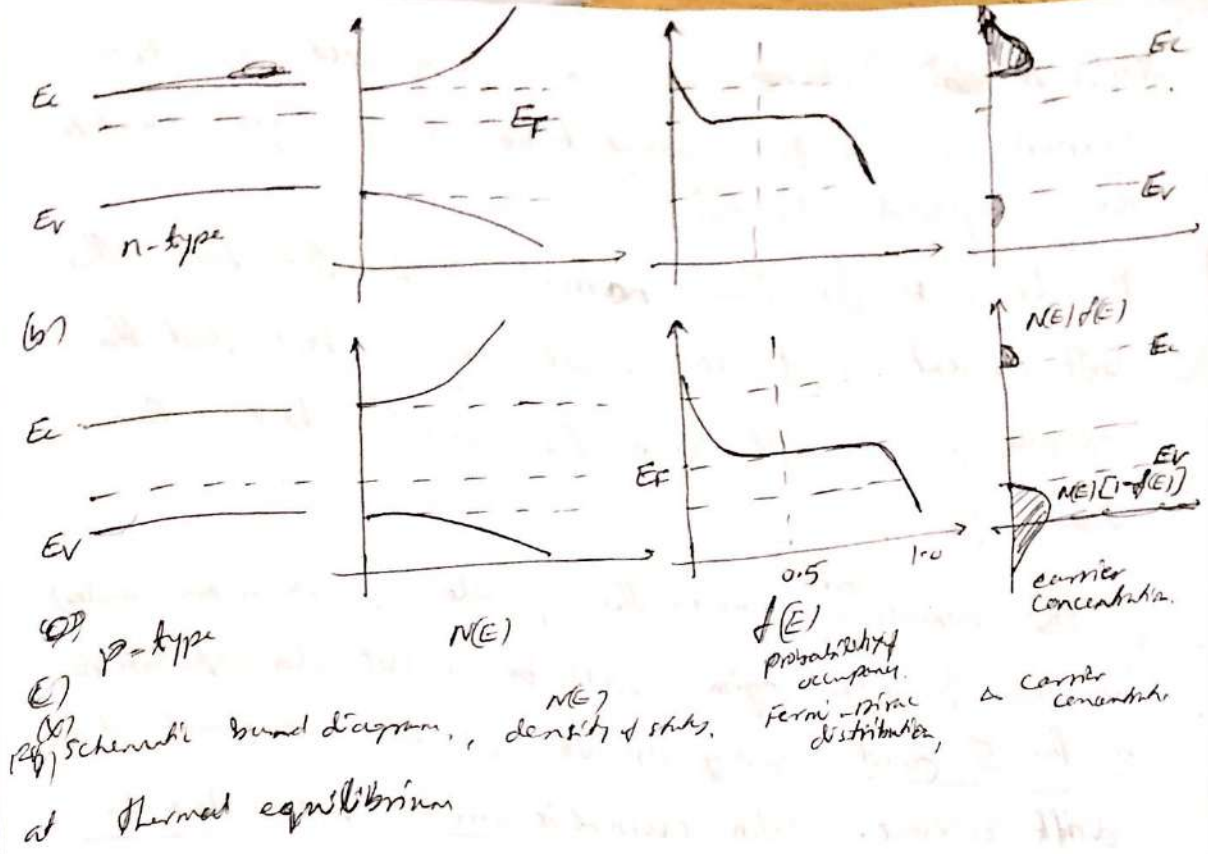 Ec
EF
Ec
Ev
Ev
n-type
(b)
N(E) f(E)
Ec
Ec
EF
Ev
N(E)[1-f(E)]
Ev
0.5
1.0
carrier
concentration.
p-type
N(E)
f(E)
probability of
occupancy.
N(E)
Schematic band diagram, density of states, Fermi-Dirac
distribution,
carrier
concentratn
at thermal equilibrium